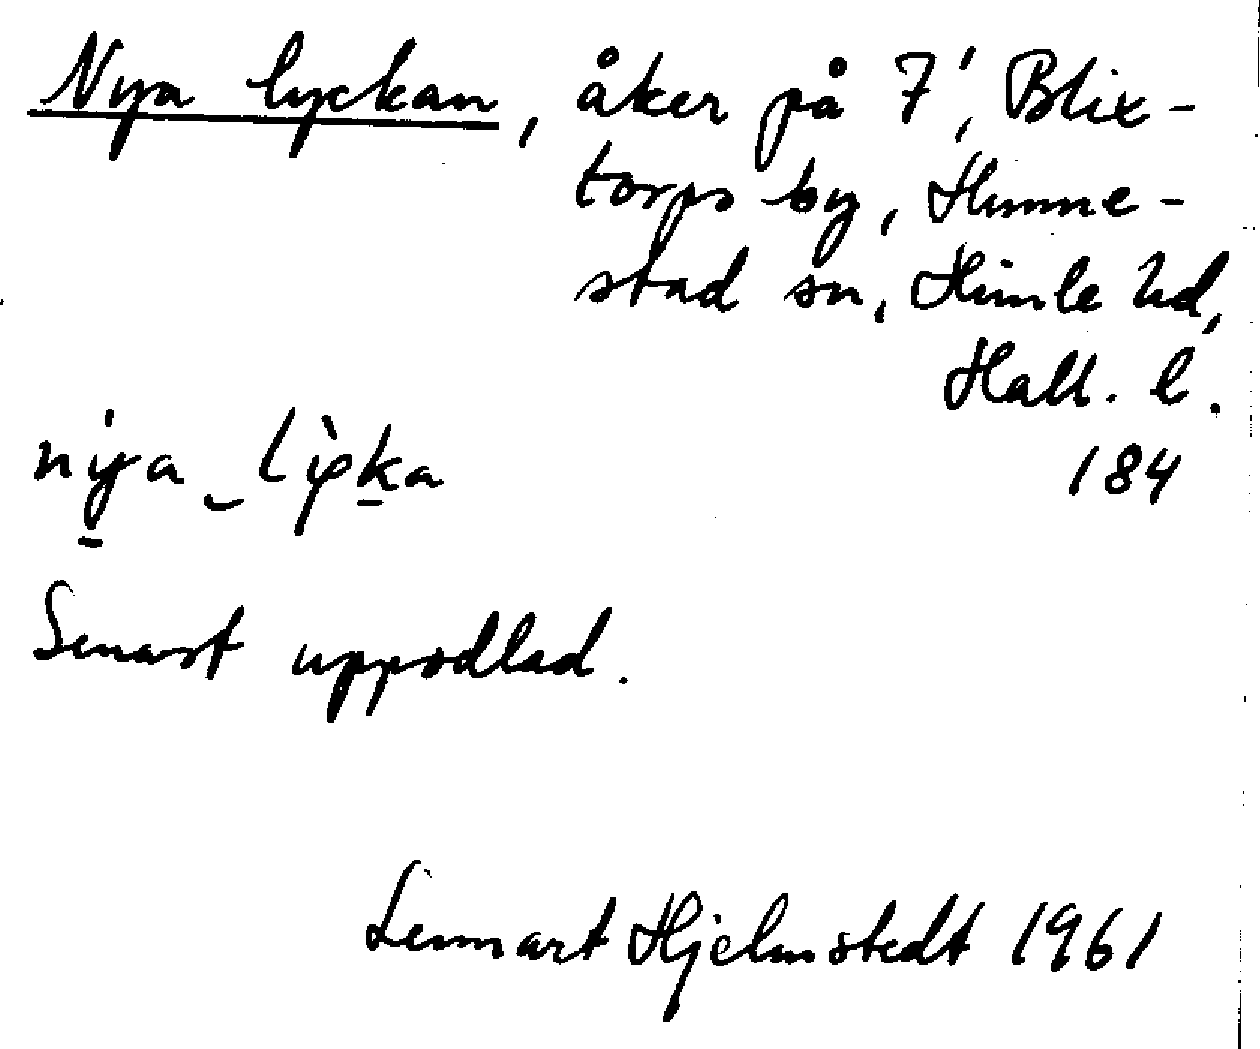 Nya lyckan, åker på 7', Blix-
torps by, Hunne-
stad sn, Himle hd,
Hall. l.
184
Senast uppodlad.
Lennart Hjelmstedt 1961